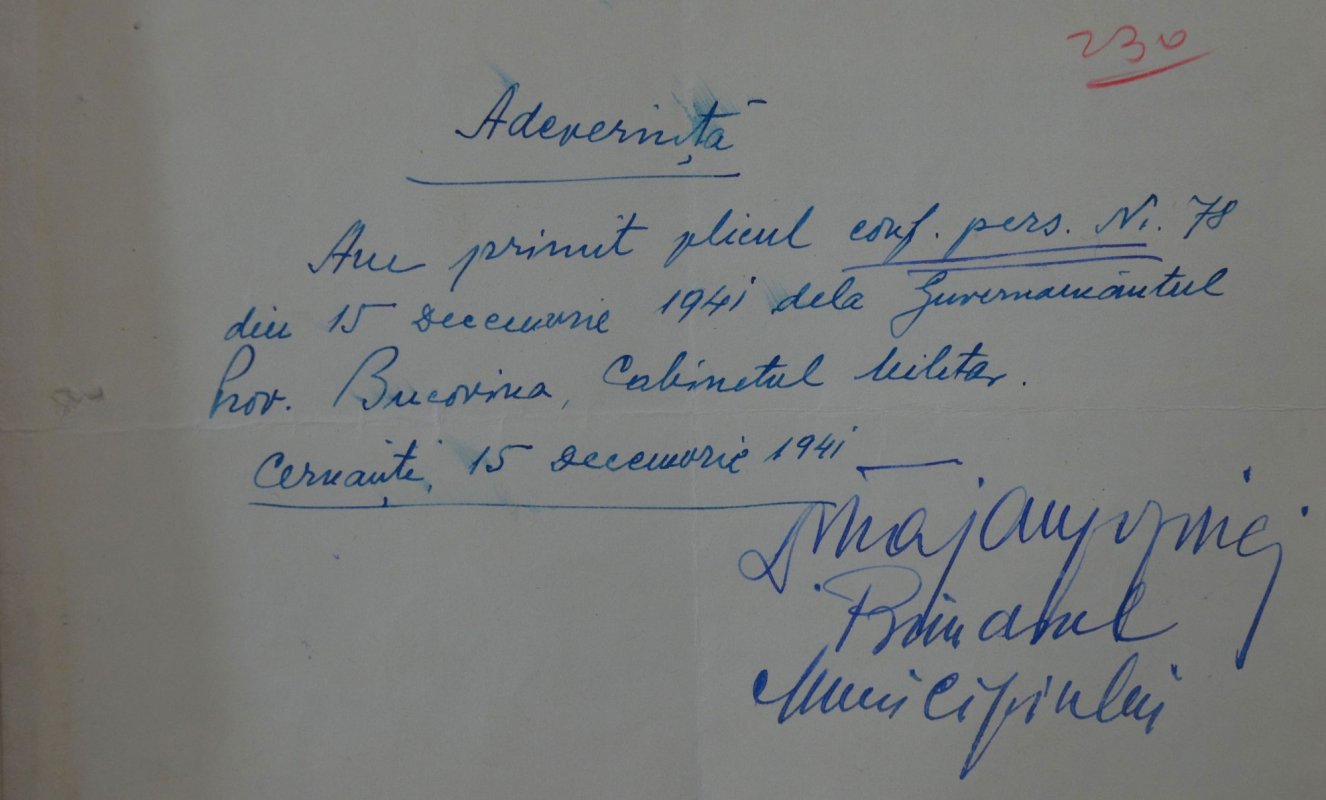 230
Adeverință
Am primit plicul conf. pers. Nr. 78
din 15 Decemvrie 1941 dela Guvernamântul
Prov. Bucovina, Cabinetul Militar.
Cernăuți, 15 Decemvrie 1941
Primarul
Municipiului